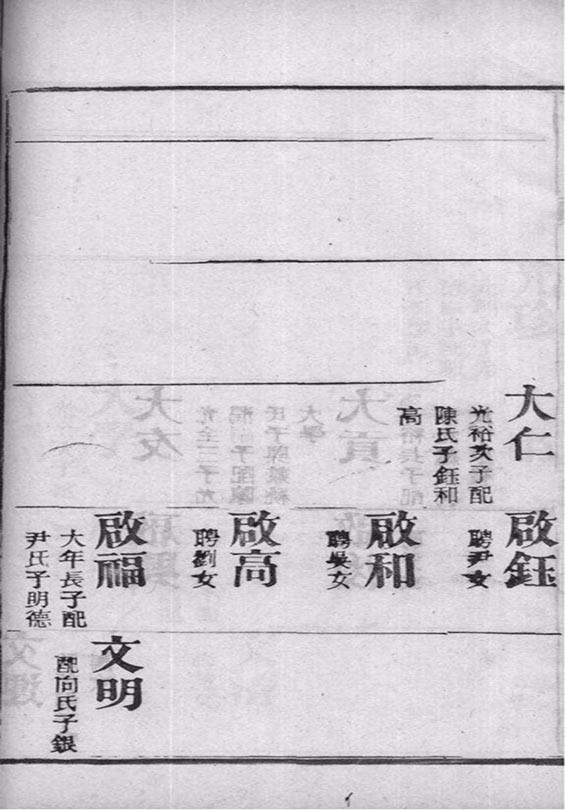 大仁
光裕次子配
陳氏子鈺和
高
啟鈺
聘尹女
啟和
聘吳女
啟高
聘劉女
啟福
大年長子配
尹氏子明德
文明
配向氏子銀